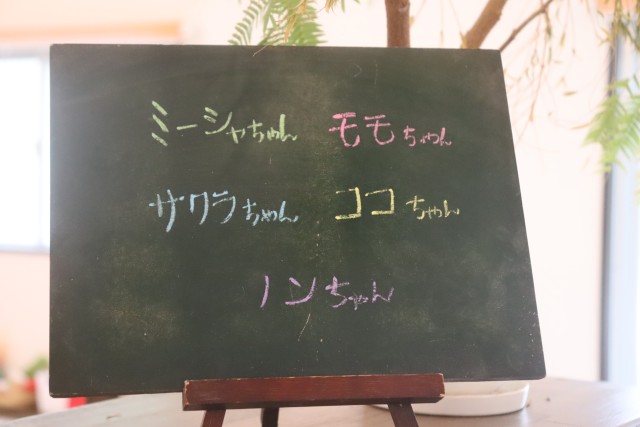 ミーシャちゃん モモちゃん
サクラちゃん ココちゃん
ノンちゃん